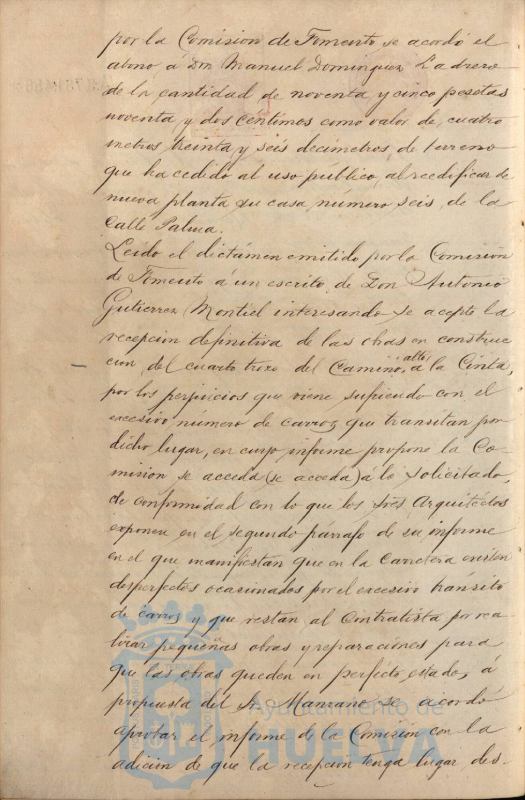 por la Comision de Fomento se acordó el
abono á Don Manuel Dominguez Ladrero
de la cantidad de noventa y cinco pesetas
noventa y dos céntimos como valor de cuatro
metros treinta y seis decímetros de terreno
que ha cedido al uso público, al reedificar de
nueva planta su casa, numero seis de la
Calle Palma.
Leido el dictámen emitido por la Comisión
de Fomento á un escrito de Don Antonio
Gutierrez Montiel interesando se acepte la
recepcion definitiva de las obras en construc-
cion, del cuarto trozo del Camino alto á la Cinta,
por los perjuicios que viene sufriendo con el
excesivo número de carros que transitan por
dicho lugar, en cuyo informe propone la Co-
mision se acceda (se acceda) á lo solicitado,
de conformidad con lo que los tres Arquitectos
exponen en el segundo párrafo de su informe
en el que manifiestan que en la Carretera existen
desperfectos ocasionados por el excesivo tránsito
de carros y que restan al Contratista por rea-
lizar pequeñas obras y reparaciones para
que las obras queden en perfecto estado, á
propuesta del Sr. Manzano se acordó
aprobar el informe de la Comisión con la
adicion de que la recepcion tenga lugar des-
Ayuntamiento de
HUELVA